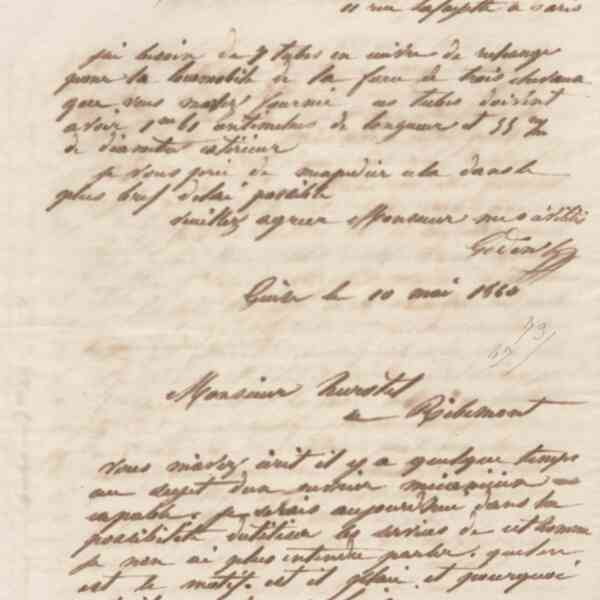 11 rue Lafayette a Paris
j'ai besoin de 7 tubes en cuivre de rechange
pour la locomobile de la force de trois chevaux
que vous m'avez fournie ces tubes doivent
avoir 1m 61 centimetres de longueur et 55 m/m
de diametre exterieur
je vous prie de m'expedier cela dans le
plus bref delai possible
veuillez agreer Monsieur mes
Godin
Guise le 10 mai 1860
73
Monsieur
a Ribemont
vous m'avez écrit il y a quelque temps
au sujet d'un ouvrier mécanicien
capable, je serais aujourd'hui dans la
possibilité d'utiliser les services de cet homme
je n'en ai plus entendu parler, quel en
est le motif, est il placé, et pourquoi